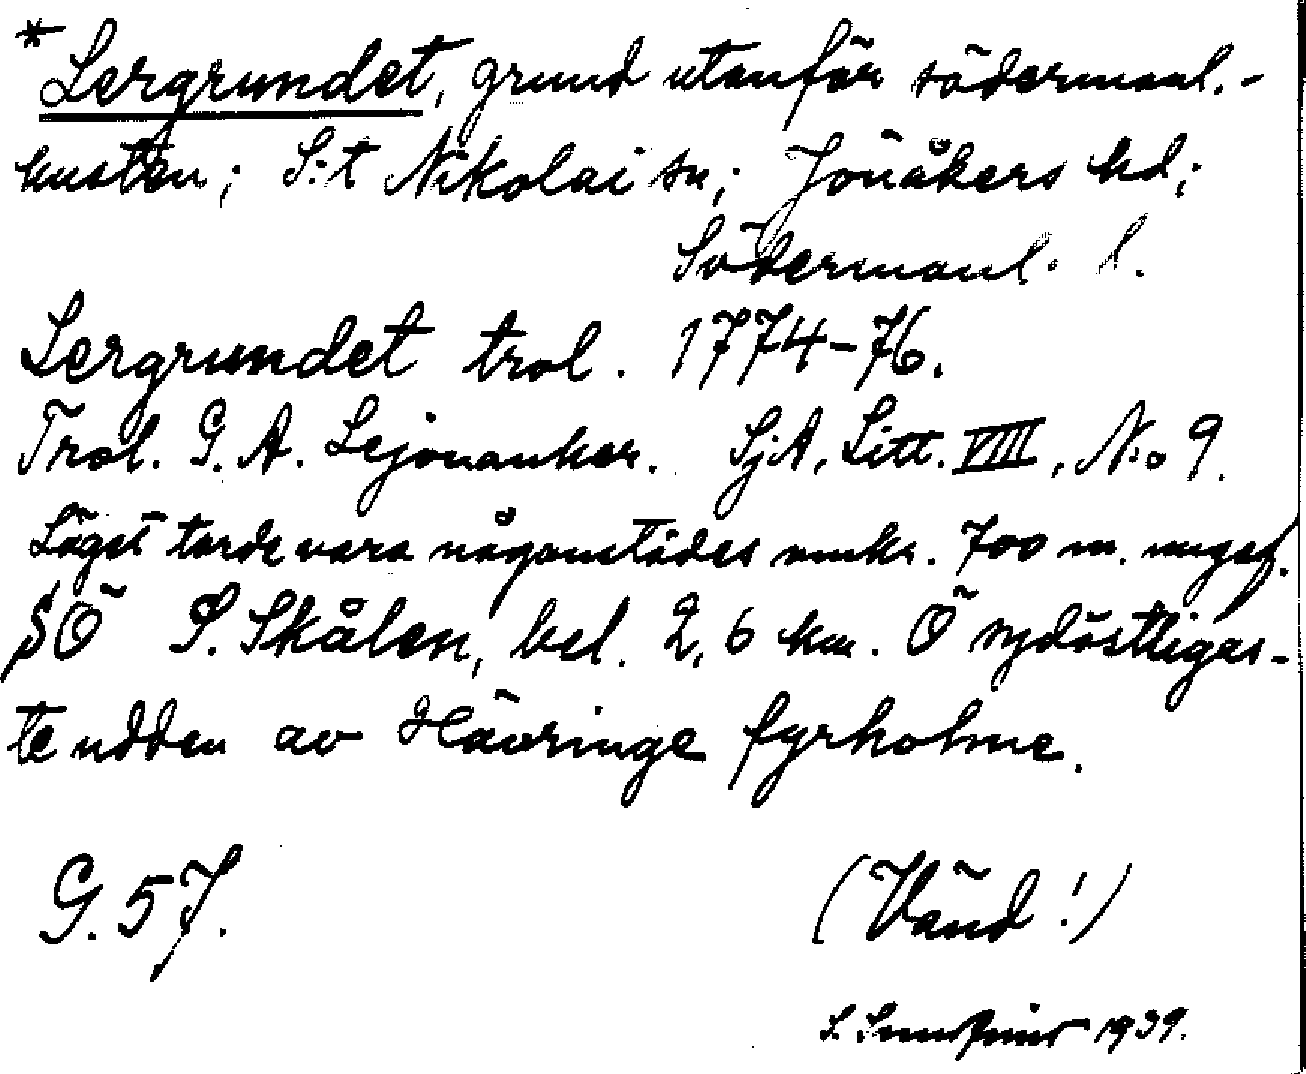 * Lergrundet, grund utanför södermanl.-
kusten; S:t Nikolai sn; Jönåkers hd;
Södermanl. l.
Lergrundet trol. 1774-76.
Trol. G. A. Lejonanker. SjA, Litt. VIII, N:o 9.
Läget torde vara någonstädes omkr. 700 m. ungef.
SÖ S. Skålen, bel. 2,6 km. Ö sydöstligas-
te udden av Hävringe fyrholme.
G. 57.
(Vänd!)
S. 1939.